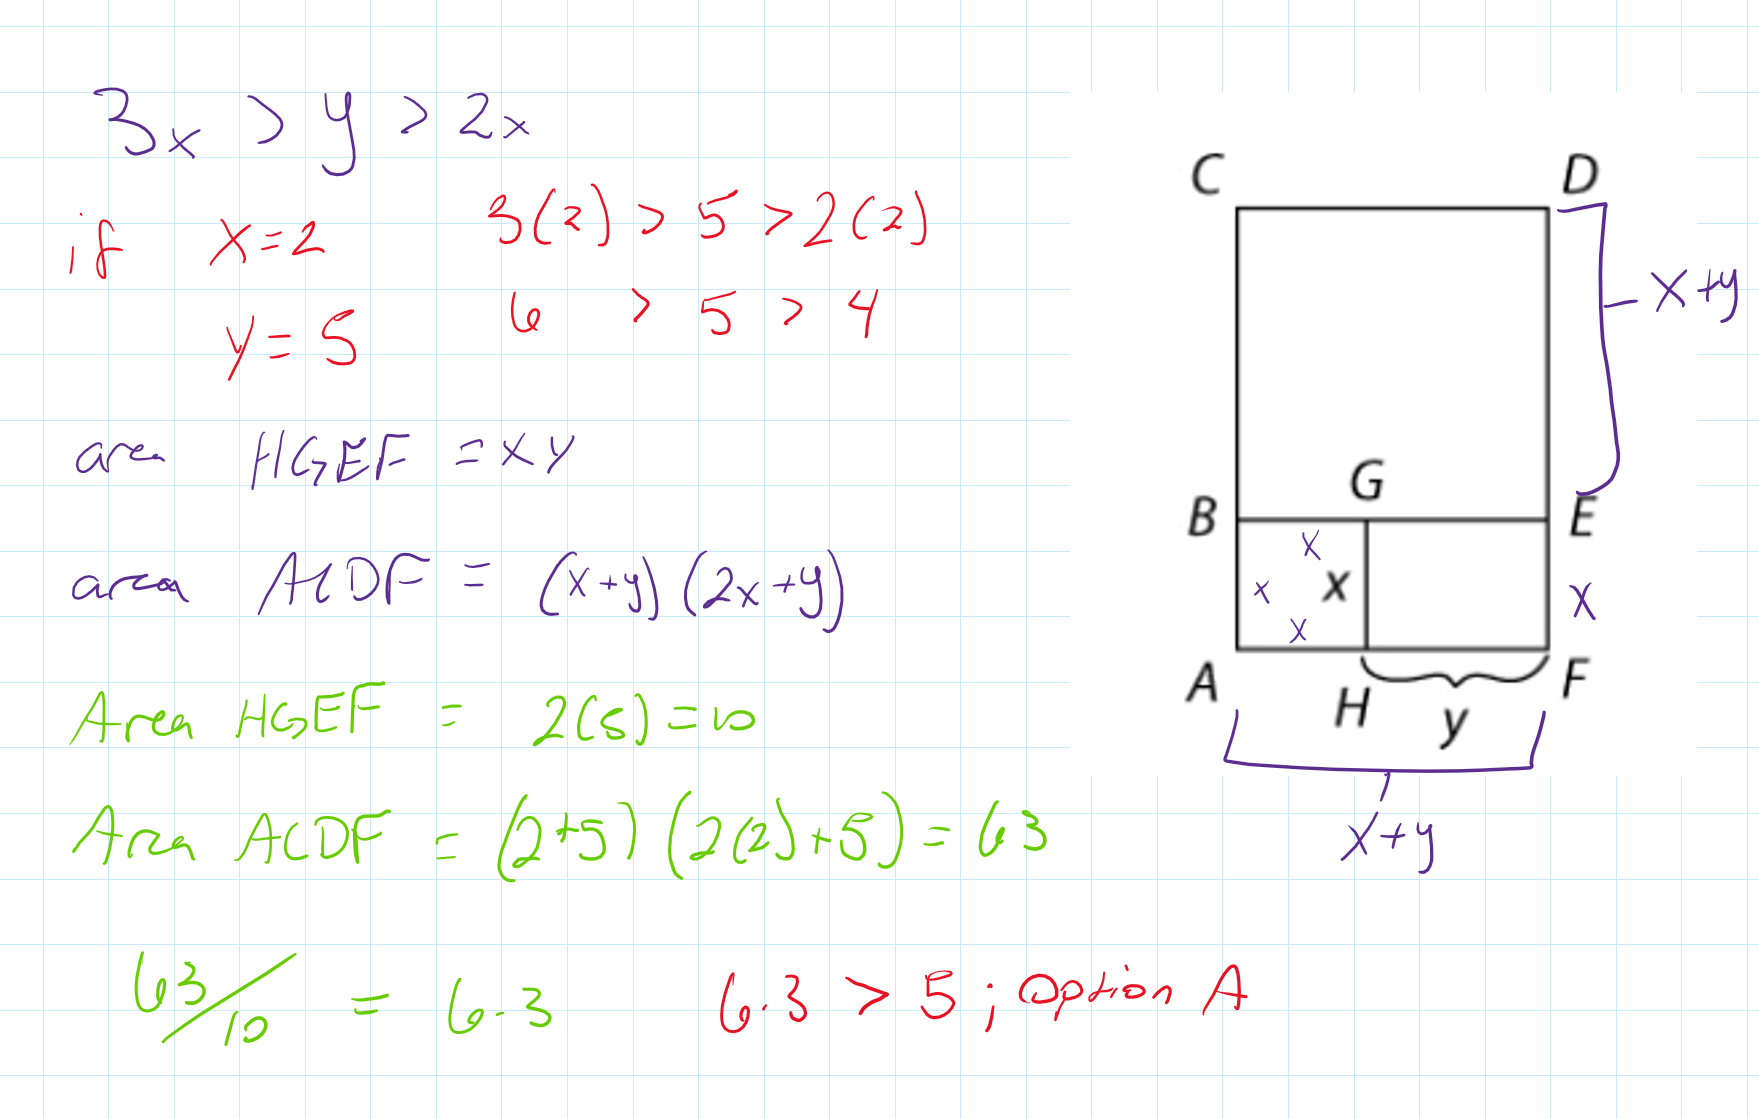 3x > y > 2x
if x=2 3(2) > 5 > 2(2)
y = 5 6 > 5 > 4
area HGEF = xy
area ACDF = (x+y)(2x+y)
Area HGEF = 2(5)=10
Area ACDF = (2+5)(2(2)+5) = 63
63/10 = 6.3 6.3 > 5 ; Option A
C D
x+y
G
B E
x
x x x
x
A H F
y
x+y